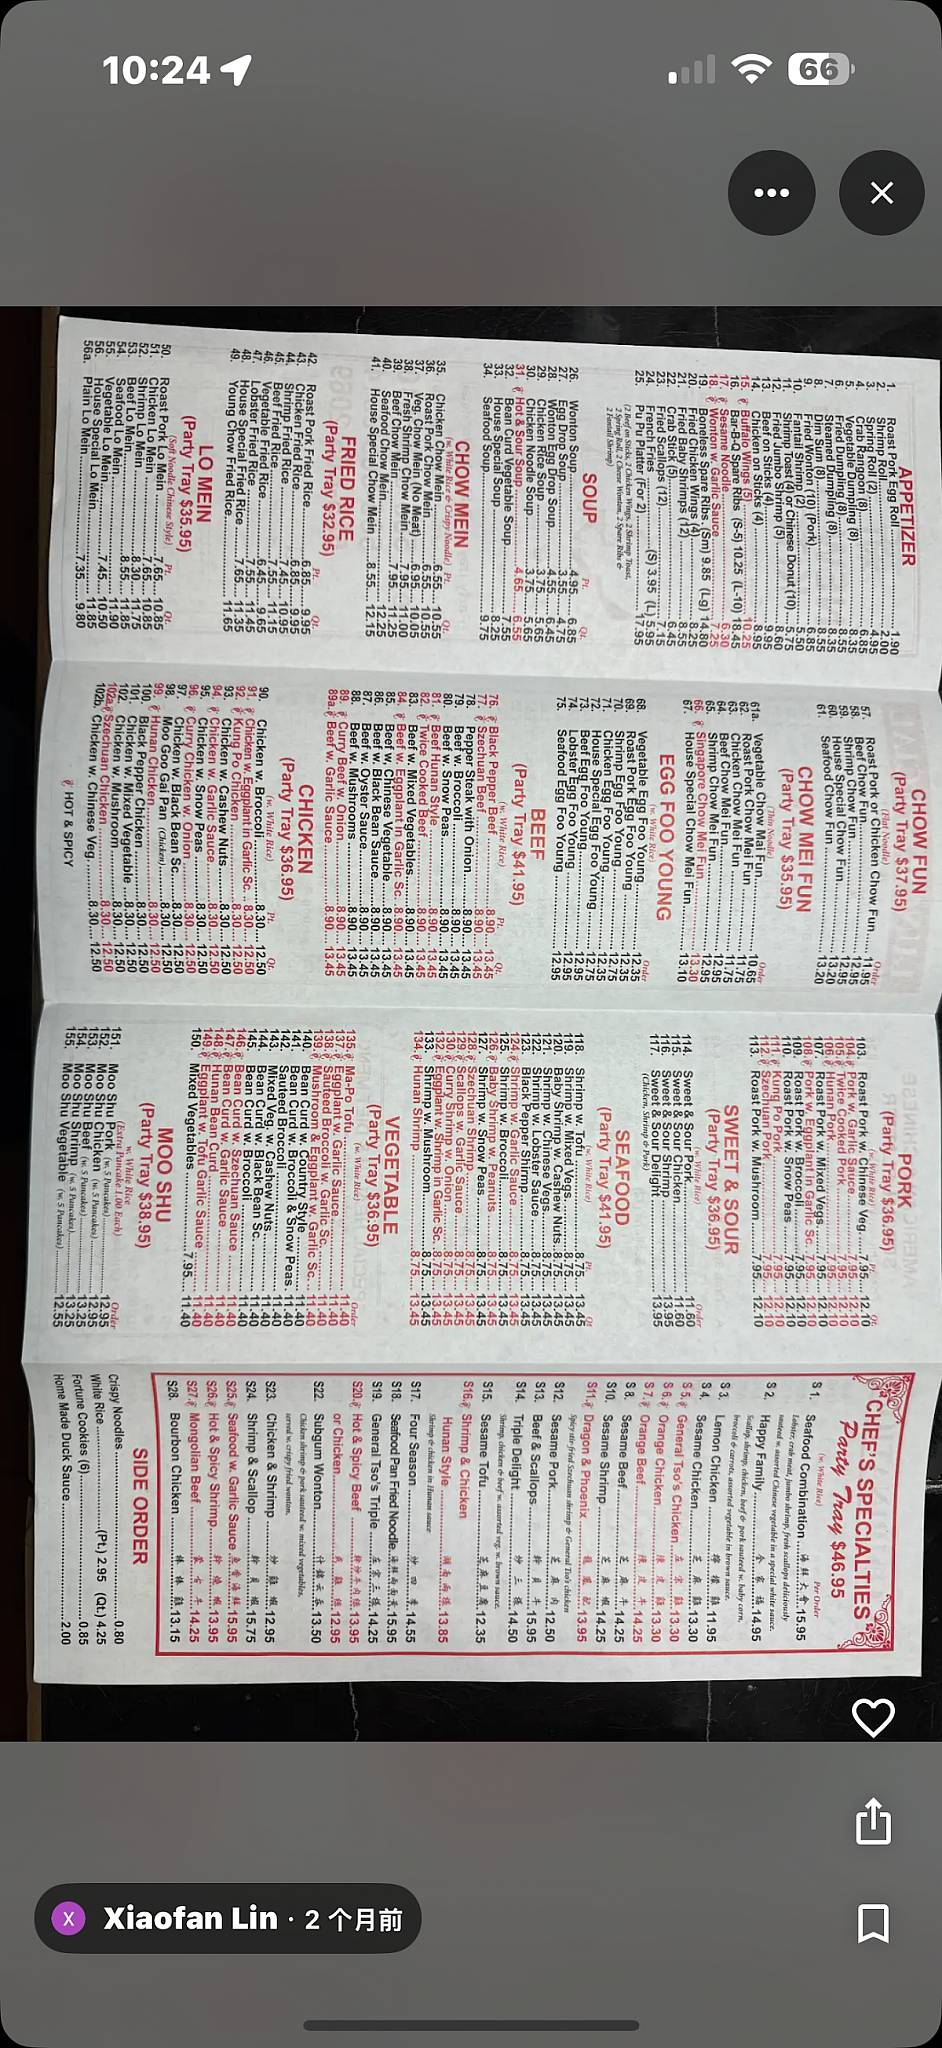 10:24
66
APPETIZER
1. Roast Pork Egg Roll 1.90
2. Shrimp Roll (2) 2.00
4. Crab Rangoon (8) 6.85
5. Vegetable Dumpling (8)
6. Fried Dumpling (8)
7. Steamed Dumpling (8)
8. Dim Sum (8)
9. Fried Wonton (10) (Pork)
10. Fantail Shrimp (2)
11. Shrimp Toast (4) or Chinese Donut (10) 5.75
12. Fried Jumbo Shrimp (5) 8.60
13. Beef Sticks (4) 9.95
14. Chicken on Sticks (4) 8.95
15. Buffalo Wings (5) 10.25
16. Bar-B-Q Spare Ribs (S-5) 10.25 (L-10) 18.45
17. Sesame Noodle 6.30
18. Wonton w. Garlic Sauce 7.25
19. Boneless Spare Ribs (Sm) 9.85 (Lg) 14.80
20. Fried Chicken Wings (4) 8.25
21. Fried Baby Shrimps (12) 8.55
22. Crab Stick 6.45
23. Fried Scallops (12) 7.15
24. French Fries (S) 3.95 (L) 5.95
25. Pu Pu Platter (For 2) 17.95
(2 Beef on Sticks, 2 Chicken Wings, 2 Shrimp Toast,
2 Spring Roll, 2 Cheese Wonton, 2 Spare Ribs &
2 Fantail Shrimp)
SOUP
Pt. Qt.
26. Wonton Soup 4.95 6.85
27. Egg Drop Soup 4.75
28. Wonton Egg Drop Soup 4.55 6.45
29. Chicken Rice Soup 3.75 5.65
30. Chicken Noodle Soup 3.75 5.65
31. Hot & Sour Soup 4.65 6.55
32. Bean Curd Vegetable Soup 7.55
33. House Special Soup 8.25
34. Seafood Soup 9.75
CHOW MEIN
(w. White Rice & Crispy Noodle) Pt. Qt.
35. Chicken Chow Mein 6.55 10.55
36. Roast Pork Chow Mein 6.55 10.55
37. Veg. Chow Mein (No Meat) 6.95 10.05
38. Fresh Shrimp Chow Mein 7.95 11.00
39. Beef Chow Mein 7.95 11.00
40. Seafood Chow Mein 12.25
41. House Special Chow Mein 8.55 12.15
FRIED RICE
(Party Tray $32.95)
Pt. Qt.
42. Roast Pork Fried Rice 6.85 9.95
43. Chicken Fried Rice 6.85 9.95
44. Shrimp Fried Rice 6.45 10.95
45. Beef Fried Rice 7.55 11.15
46. Vegetable Fried Rice 6.45 9.65
47. Lobster Fried Rice 7.55 11.45
48. House Special Fried Rice 7.65 11.45
49. Young Chow Fried Rice 11.65
LO MEIN
(Party Tray $35.95)
(Soft Noodle Chinese Style) Pt. Qt.
50. Roast Pork Lo Mein 7.65 10.85
51. Chicken Lo Mein 7.65 10.85
52. Shrimp Lo Mein 8.30 11.75
53. Beef Lo Mein 8.30 11.75
54. Seafood Lo Mein 8.55 11.90
55. Vegetable Lo Mein 7.45 10.50
56. House Special Lo Mein 11.85
56a. Plain Lo Mein 7.35 9.80
CHOW FUN
(Party Tray $37.95)
(Flat Noodle) Order
57. Roast Pork or Chicken Chow Fun 11.95
58. Beef Chow Fun 12.95
59. Shrimp Chow Fun 12.95
60. House Special Chow Fun 13.20
61. Seafood Chow Fun 13.20
CHOW MEI FUN
(Party Tray $35.95)
(Thin Noodle) Order
61a. Vegetable Chow Mai Fun 10.65
62. Roast Pork Chow Mei Fun 11.75
63. Chicken Chow Mei Fun 11.75
64. Beef Chow Mei Fun 12.95
65. Shrimp Chow Mei Fun 12.95
66. Singapore Chow Mei Fun 13.30
67. House Special Chow Mei Fun 13.10
EGG FOO YOUNG
(w. White Rice) Order
68. Vegetable Egg Foo Young 12.35
69. Roast Pork Egg Foo Young 12.35
70. Shrimp Egg Foo Young 12.95
71. Chicken Egg Foo Young 12.35
72. House Special Egg Foo Young 12.95
73. Beef Egg Foo Young 12.95
74. Lobster Egg Foo Young 12.95
75. Seafood Egg Foo Young 12.95
BEEF
(Party Tray $41.95)
(w. White Rice) Pt. Qt.
76. Black Pepper Beef 8.90 13.45
77. Szechuan Beef 8.90 13.45
78. Pepper Steak with Onion 8.90 13.45
79. Beef w. Broccoli 8.90 13.45
80. Beef w. Snow Peas 8.90 13.45
81. Beef Hunan Style 8.90 13.45
82. Twice Cooked Beef 8.90 13.45
83. Beef w. Mixed Vegetables 8.90 13.45
84. Beef w. Eggplant in Garlic Sc. 8.90 13.45
85. Beef w. Chinese Vegetable 8.90 13.45
86. Beef w. Black Bean Sauce 8.90 13.45
87. Beef w. Oyster Sauce 8.90 13.45
88. Beef w. Mushroom 8.90 13.45
89. Curry Beef w. Onion 8.90 13.45
89a. Beef w. Garlic Sauce 8.90 13.45
CHICKEN
(Party Tray $36.95)
(w. White Rice) Pt. Qt.
90. Chicken w. Broccoli 8.30 12.50
91. Chicken w. Eggplant in Garlic Sc. 8.30 12.50
92. Kung Po Chicken 8.30 12.50
93. Chicken w. Cashew Nuts 8.30 12.50
94. Chicken w. Garlic Sauce 8.30 12.50
95. Chicken w. Snow Peas 8.30 12.50
96. Curry Chicken w. Onion 8.30 12.50
97. Chicken w. Black Bean Sc. 8.30 12.50
98. Moo Goo Gai Pan (Chicken) 8.30 12.50
99. Hunan Chicken 8.30 12.50
100. Black Pepper Chicken 8.30 12.50
101. Chicken w. Mixed Vegetable 8.30 12.50
102. Chicken w. Mushroom 8.30 12.50
102a. Szechuan Chicken 8.30 12.50
102b. Chicken w. Chinese Veg. 8.30 12.50
HOT & SPICY
PORK
(Party Tray $36.95)
(w. White Rice) Pt. Qt.
103. Roast Pork w. Chinese Veg. 7.95 12.10
104. Pork w. Garlic Sauce 7.95 12.10
105. Twice Cooked Pork 7.95 12.10
106. Hunan Pork 7.95 12.10
107. Roast Pork w. Mixed Vegs. 7.95 12.10
108. Pork w. Eggplant in Garlic Sc. 7.95 12.10
109. Roast Pork w. Broccoli 7.95 12.10
110. Roast Pork w. Snow Peas 7.95 12.10
111. Kung Po Pork 7.95 12.10
112. Szechuan Pork 7.95 12.10
113. Roast Pork w. Mushroom 7.95 12.10
SWEET & SOUR
(Party Tray $36.95)
Order
114. Sweet & Sour Pork 11.60
115. Sweet & Sour Chicken 11.60
116. Sweet & Sour Shrimp 13.95
117. Sweet & Sour Delight 13.95
(Chicken, Shrimp & Pork)
SEAFOOD
(Party Tray $41.95)
(w. White Rice) Pt. Qt.
118. Shrimp w. Tofu 8.75 13.45
119. Shrimp w. Mixed Vegs. 8.75 13.45
120. Baby Shrimp w. Cashew Nuts 8.75 13.45
121. Shrimp w. Chinese Vegs. 8.75 13.45
122. Shrimp w. Lobster Sauce 8.75 13.45
123. Black Pepper Shrimp 8.75 13.45
124. Shrimp w. Garlic Sauce 8.75 13.45
125. Shrimp w. Broccoli 8.75 13.45
126. Baby Shrimp w. Peanuts 8.75 13.45
127. Shrimp w. Snow Peas 8.75 13.45
128. Szechuan Shrimp 8.75 13.45
129. Scallops w. Garlic Sauce 8.75 13.45
130. Curry Shrimp w. Onion 8.75 13.45
132. Eggplant w. Shrimp in Garlic Sc. 8.75 13.45
133. Shrimp w. Mushroom 8.75 13.45
134. Hunan Shrimp 8.75 13.45
VEGETABLE
(Party Tray $36.95)
(w. White Rice) Order
135. Ma-Po Tofu 11.40
137. Eggplant w. Garlic Sauce 11.40
138. Sauteed Broccoli w. Garlic Sc. 11.40
139. Mushroom & Eggplant w. Garlic Sc. 11.40
140. Bean Curd w. Country Style 11.40
141. Sauteed Broccoli 11.40
142. Sauteed Broccoli & Snow Peas 11.40
143. Mixed Veg. w. Cashew Nuts 11.40
144. Bean Curd w. Black Bean Sc. 11.40
145. Bean Curd w. Broccoli 11.40
146. Bean Curd w. Szechuan Sauce 11.40
147. Bean Curd w. Garlic Sauce 11.40
148. Hunan Bean Curd 11.40
149. Eggplant w. Tofu Garlic Sauce 11.40
150. Mixed Vegetables 7.95 11.40
MOO SHU
(Party Tray $38.95)
w. White Rice
(Extra Pancake 1.00 Each) Order
151. Moo Shu Pork (w. 5 Pancakes) 12.95
152. Moo Shu Chicken (w. 5 Pancakes) 12.95
153. Moo Shu Beef (w. 5 Pancakes) 13.25
154. Moo Shu Shrimp (w. 5 Pancakes) 13.25
155. Moo Shu Vegetable (w. 5 Pancakes) 12.55
CHEF'S SPECIALTIES
Party Tray $46.95
(w. White Rice) Per Order
S 1. Seafood Combination 海鮮大會 15.95
Lobster, crab meat, jumbo shrimp, fresh scallops deliciously
sauteed w. assorted Chinese vegetable in a special white sauce.
S 2. Happy Family 全家福 14.95
Scallop, shrimp, chicken, beef & pork sauteed w. baby corn,
broccoli & carrots, assorted vegetable in brown sauce.
S 3. Lemon Chicken 檸檬雞 11.95
S 4. Sesame Chicken 芝麻雞 13.30
S 5. General Tso's Chicken 左宗雞 13.30
S 6. Orange Chicken 陳皮雞 13.30
S 7. Orange Beef 陳皮牛 14.25
S 8. Sesame Beef 芝麻牛 14.25
S10. Sesame Shrimp 芝麻蝦 14.25
S11. Dragon & Phoenix 龍鳳配 13.95
Spicy stir-fried Szechuan shrimp & General Tso's chicken
S12. Sesame Pork 芝麻肉 12.50
S13. Beef & Scallops 干貝牛 15.95
S14. Triple Delight 炒三樣 14.50
Shrimp, chicken & beef w. assorted veg. w. brown sauce.
S15. Sesame Tofu 芝麻豆腐 12.35
S16. Shrimp & Chicken
Hunan Style 湖南兩樣 13.85
Shrimp & chicken in Hunan sauce
S17. Four Season 炒四季 14.55
S18. Seafood Pan Fried Noodle 15.95
S19. General Tso's Triple 左宗三樣 14.25
S20. Hot & Spicy Beef 13.95
or Chicken 12.95
S22. Subgum Wonton 什錦云吞 13.50
Chicken shrimp & pork sauteed w. mixed vegetables,
served w. crispy fried wonton.
S23. Chicken & Shrimp 炒雞蝦 12.95
S24. Shrimp & Scallop 干貝蝦 15.75
S25. Seafood w. Garlic Sauce 魚香海鮮 15.95
S26. Hot & Spicy Shrimp 干燒蝦 13.95
S27. Mongolian Beef 蒙古牛 14.25
S28. Bourbon Chicken 13.15
SIDE ORDER
Crispy Noodles 0.80
White Rice (Pt.) 2.95 (Qt.) 4.25
Fortune Cookies (6) 0.85
Home Made Duck Sauce 2.00
X Xiaofan Lin · 2 个月前